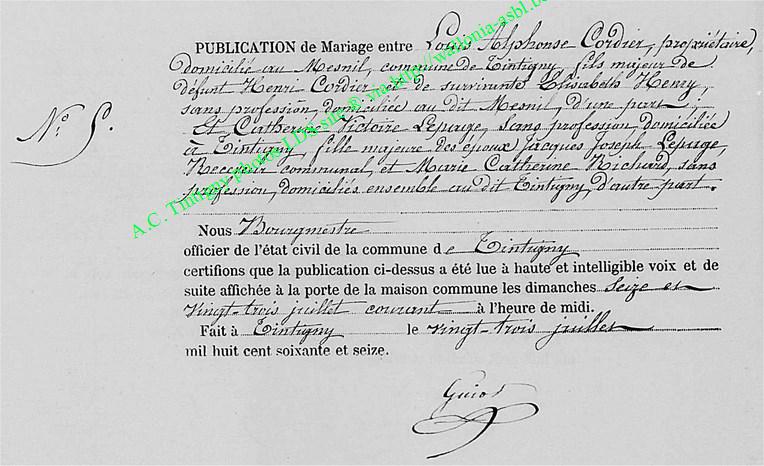 PUBLICATION de Mariage entre Louis Alphonse Cordier, propriétaire,
domicilié au Mesnil, commune de Tintigny, fils majeur de
défunt Henri Cordier, et de survivante Elisabeth Henry,
sans profession, domiciliée au dit Mesnil, d'une part;
N° 5.
Et Catherine Victoire Lepage, sans profession, domiciliée
à Tintigny, fille majeure des époux Jacques Joseph Lepage,
Receveur communal, et Marie Catherine Richard, sans
profession, domiciliés ensemble au dit Tintigny, d'autre part.
Nous Bourgmestre
officier de l'état civil de la commune de Tintigny
certifions que la publication ci-dessus a été lue à haute et intelligible voix et de
suite affichée à la porte de la maison commune les dimanches seize et
vingt-trois juillet courant à l'heure de midi.
Fait à Tintigny le vingt-trois juillet
mil huit cent soixante et seize.
A.C. Tintigny photos LDS sur ® via http://wallonia-asbl.be